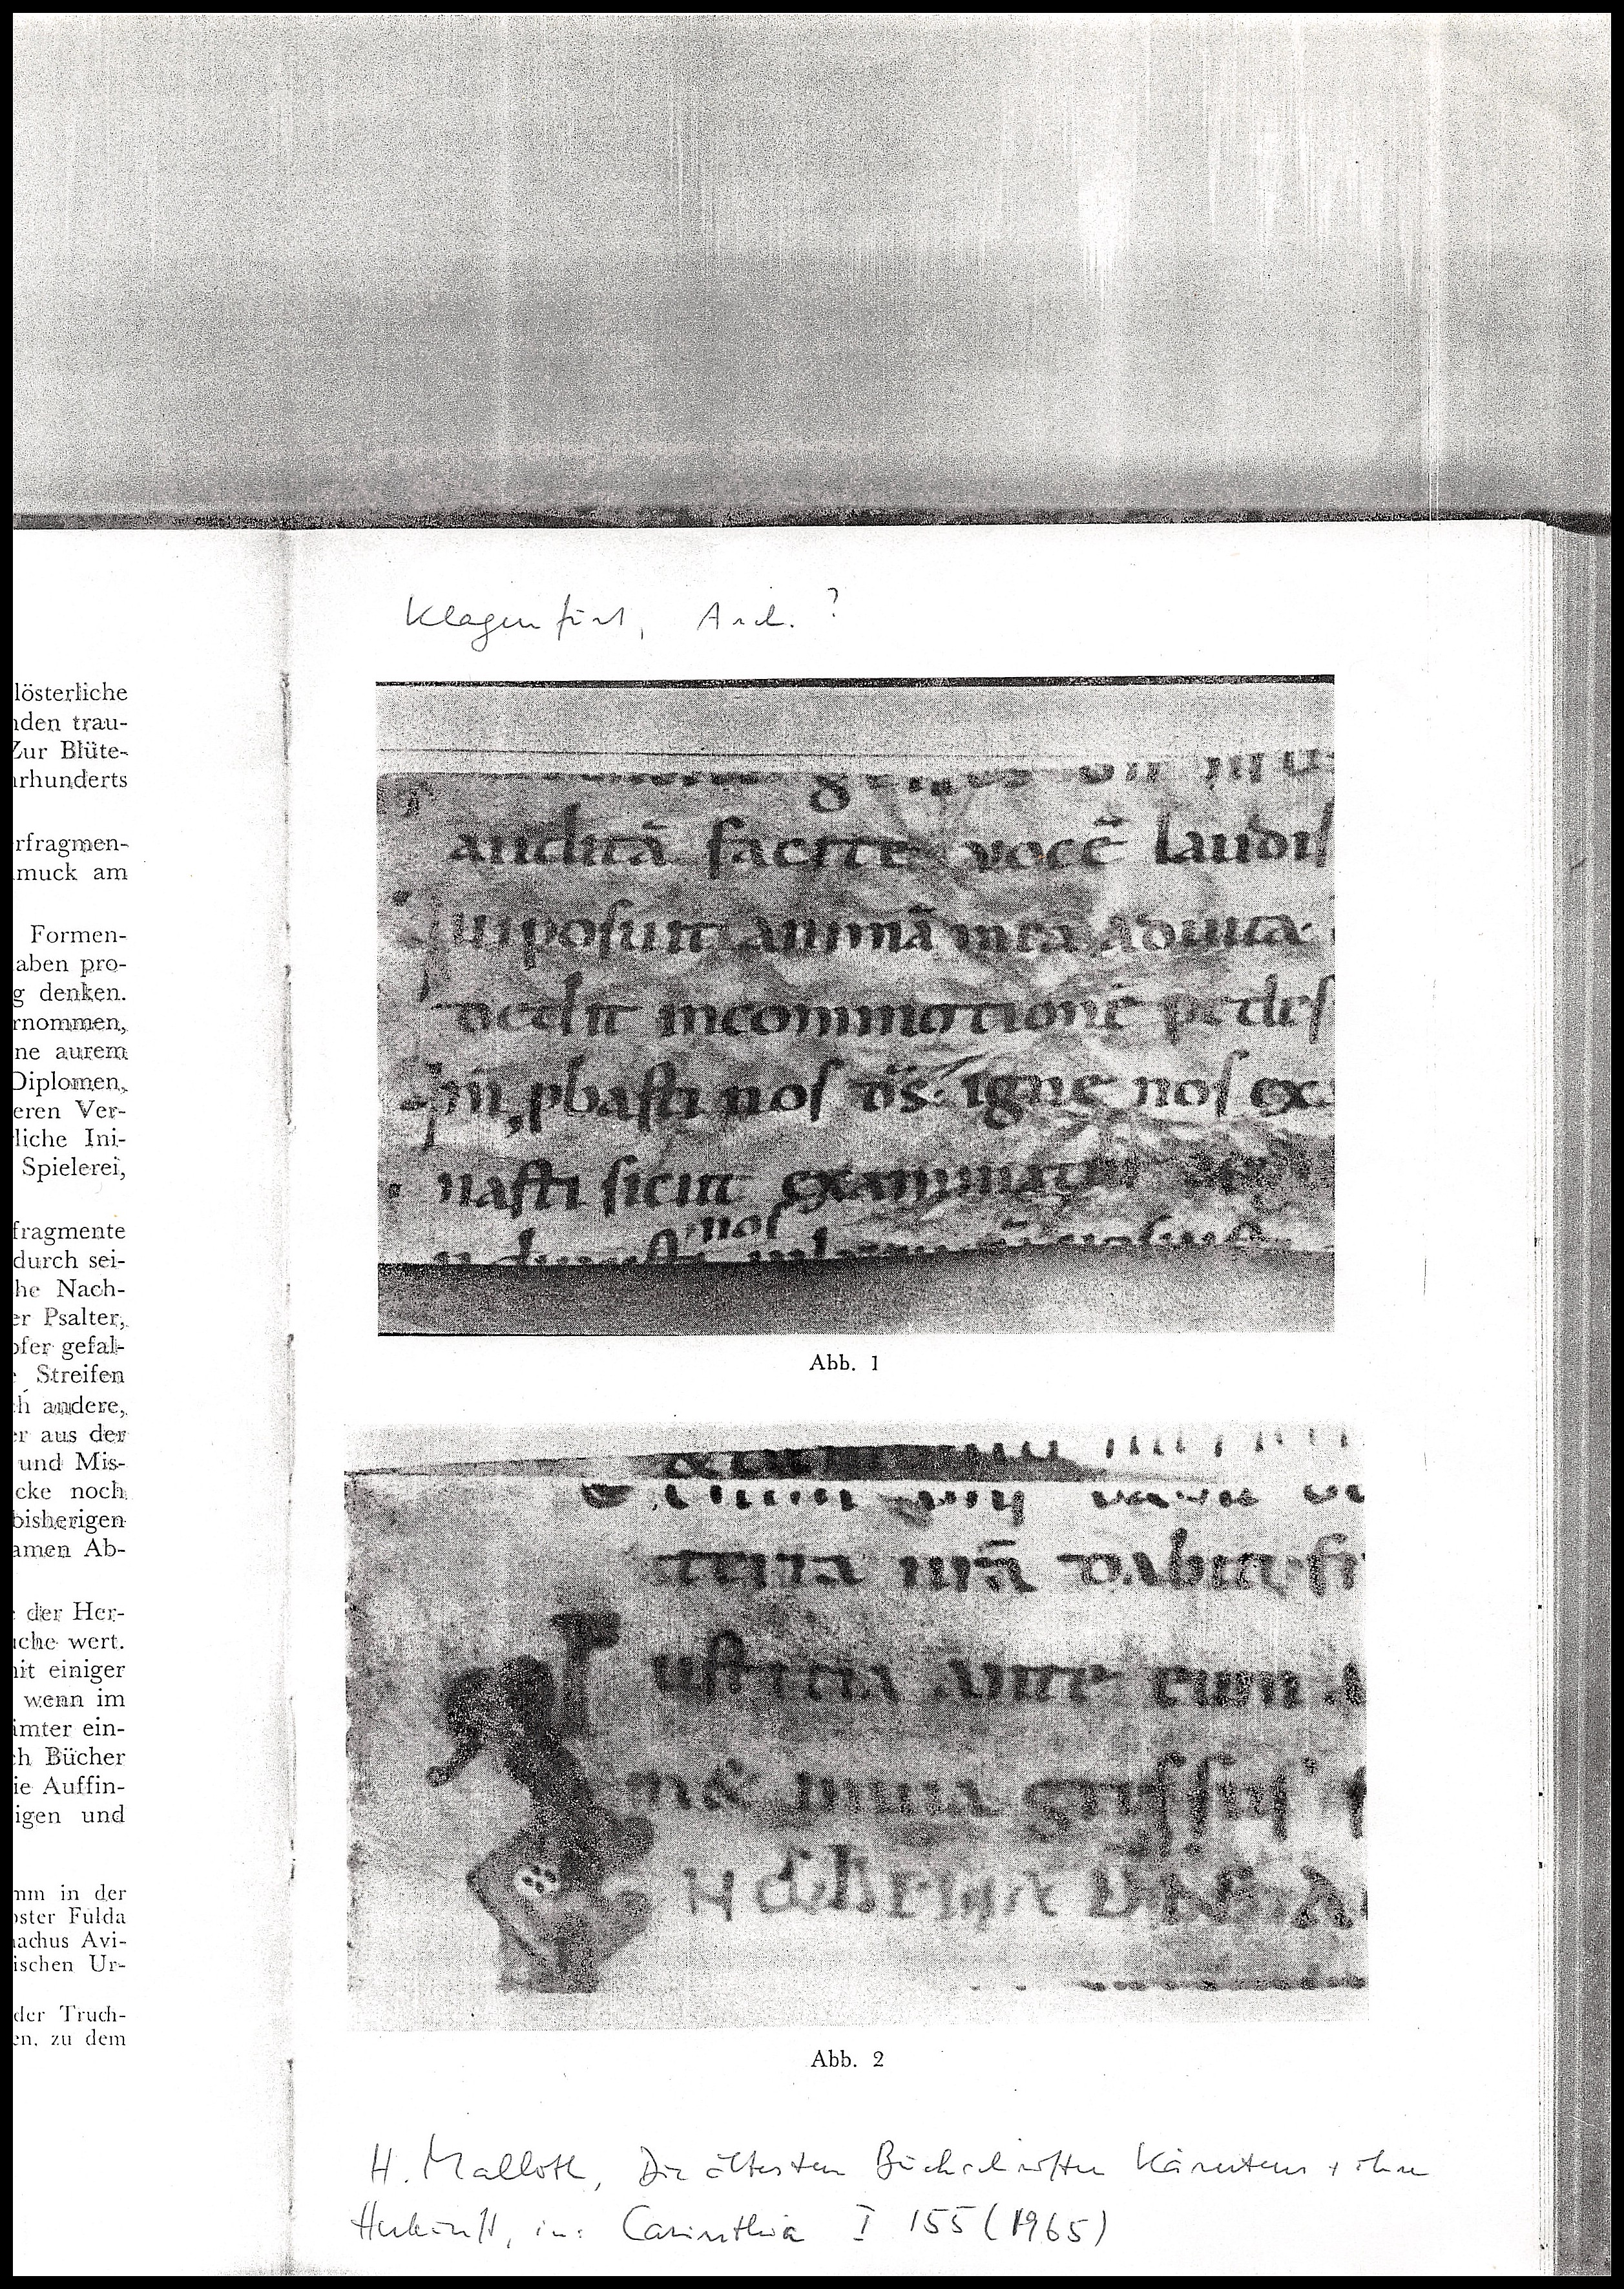 lösterliche
nden trau-
Zur Blüte-
rhunderts
rfragmen-
muck am
Formen-
aben pro-
g denken.
rnommen,
ne aurem
Diplomen,
eren Ver-
liche Ini-
Spielerei,
fragmente
durch sei-
he Nach-
er Psalter,
pfer gefal-
Streifen
h andere,
r aus der
und Mis-
cke noch
bisherigen
amen Ab-
der Her-
che wert.
it einiger
wenn im
mter ein-
h Bücher
ie Auffin-
igen und
mm in der
oster Fulda
achus Avi-
ischen Ur-
der Truch-
en, zu dem
Klagenfurt, Arch. ?
auditā facite vocē laudis
uiposuit animā mea aduita
dedit incommotionē pedes
m ꝓbasti nos ds̄. igne nos ex
nasti sicut examinatur
nos
Abb. 1
terra nr̄a dabit fr
I ustitia ante eum a
n& in uia gressus
Abb. 2
H. Malloth, Die ältesten Buchschriften Kärntens + ihre
Herkunft, in: Carinthia I 155 (1965)